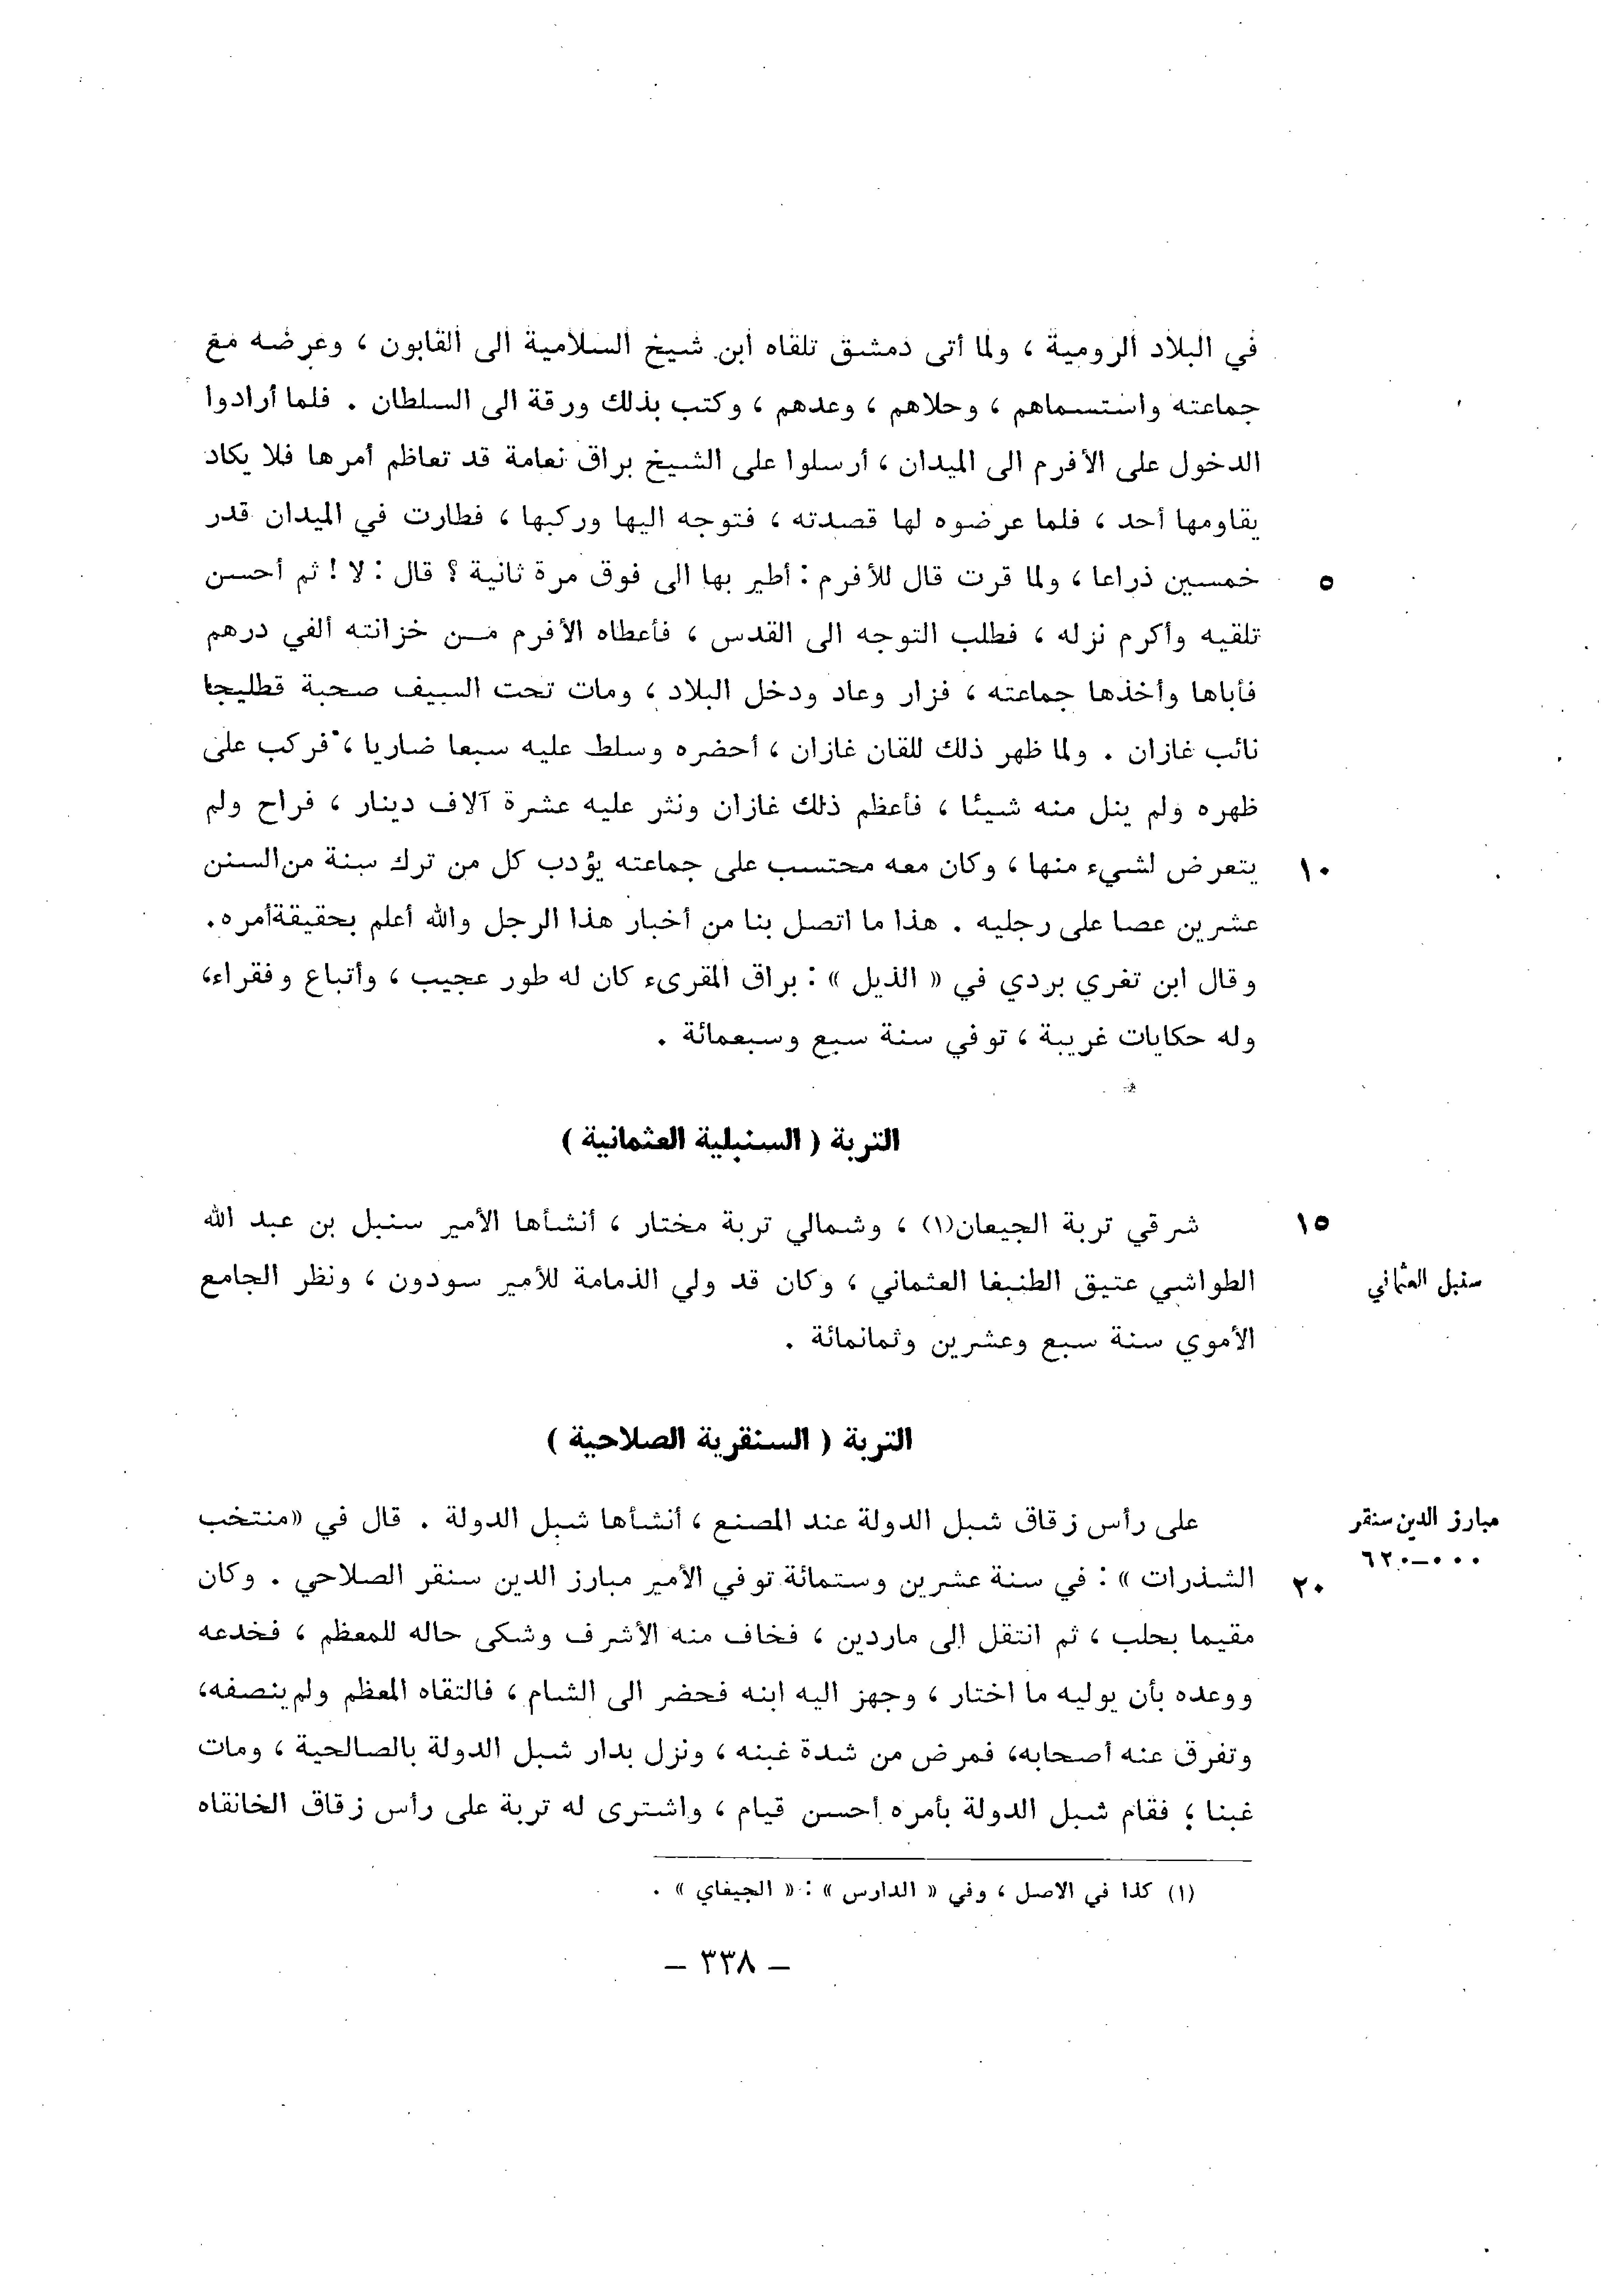 في البلاد الرومية ، ولما أتى دمشق تلقاه ابن شيخ السلامية الى القابون ، وعرضه مع
جماعته واستسماهم ، وحلاهم ، وعدهم ، وكتب بذلك ورقة الى السلطان . فلما أرادوا
الدخول على الأفرم الى الميدان ، أرسلوا على الشيخ براق نعامة قد تعاظم أمرها فلا يكاد
٥ يقاومها أحد ، فلما عرضوه لها قصدته ، فتوجه اليها وركبها ، فطارت في الميدان قدر
خمسين ذراعا ، ولما قرت قال للأفرم : أطير بها الى فوق مرة ثانية ؟ قال : لا ! ثم أحسن
تلقيه وأكرم نزله ، فطلب التوجه الى القدس ، فأعطاه الأفرم مــن خزانته ألفي درهم
فأباها وأخذها جماعته ، فزار وعاد ودخل البلاد ، ومات تحت السيف صحبة قطليجا
نائب غازان . ولما ظهر ذلك للقان غازان ، أحضره وسلط عليه سبعا ضاريا ، فركب على
ظهره ولم ينل منه شيئا ، فأعظم ذلك غازان ونثر عليه عشرة آلاف دينار ، فراح ولم
١٠ يتعرض لشيء منها ، وكان معه محتسب على جماعته يؤدب كل من ترك سنة من السنن
عشرين عصا على رجليه . هذا ما اتصل بنا من أخبار هذا الرجل والله أعلم بحقيقة أمره .
وقال ابن تغري بردي في « الذيل » : براق المقرىء كان له طور عجيب ، وأتباع وفقراء،
وله حكايات غريبة ، توفي سنة سبع وسبعمائة .
التربة ( السنبلية العثمانية )
١٥ شرقي تربة الجيعان(١) ، وشمالي تربة مختار ، أنشأها الأمير سنبل بن عبد الله
سنبل العثماني
الطواشي عتيق الطنبغا العثماني ، وكان قد ولي الذمامة للأمير سودون ، ونظر الجامع
الأموي سنة سبع وعشرين وثمانمائة .
التربة ( السنقرية الصلاحية )
مبارز الدين سنقر
٠٠٠–٦٢٠
على رأس زقاق شبل الدولة عند المصنع ، أنشأها شبل الدولة . قال في «منتخب
٢٠ الشذرات » : في سنة عشرين وستمائة توفي الأمير مبارز الدين سنقر الصلاحي . وكان
مقيما بحلب ، ثم انتقل إلى ماردين ، فخاف منه الأشرف وشكى حاله للمعظم ، فخدعه
ووعده بأن يوليه ما اختار ، وجهز اليه ابنه فحضر الى الشام ، فالتقاه المعظم ولم ينصفه،
وتفرق عنه أصحابه، فمرض من شدة غبنه ، ونزل بدار شبل الدولة بالصالحية ، ومات
غبنا ؛ فقام شبل الدولة بأمره أحسن قيام ، واشترى له تربة على رأس زقاق الخانقاه
(١) كذا في الاصل ، وفي « الدارس » : « الجيغاي » .
– ٣٣٨ –